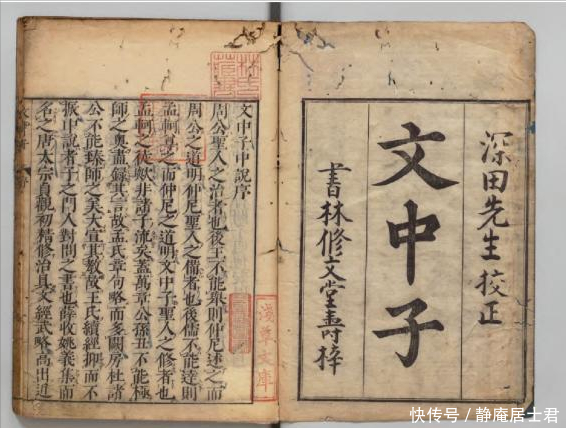 深田先生校正
文中子
書林修文堂壽梓
文中子中說序
周公聖人之治者也後王不能舉則仲尼述之而
周公之道明仲尼聖人之備者也後儒不能達則
孟軻尊之而仲尼之道明文中子聖人之修者也
孟軻之徒歟非諸子流矣蓋萬章公孫丑不能極
師之奧盡錄其言故孟氏章句略而多闕房杜諸
公不能臻師之美大宣其敎故王氏續經抑而不
振中說者子之門人對問之書也薛收姚義集而
名之唐太宗貞觀初精修治具文經武略高出近
淺草文庫
快传号 / 静庵居士君